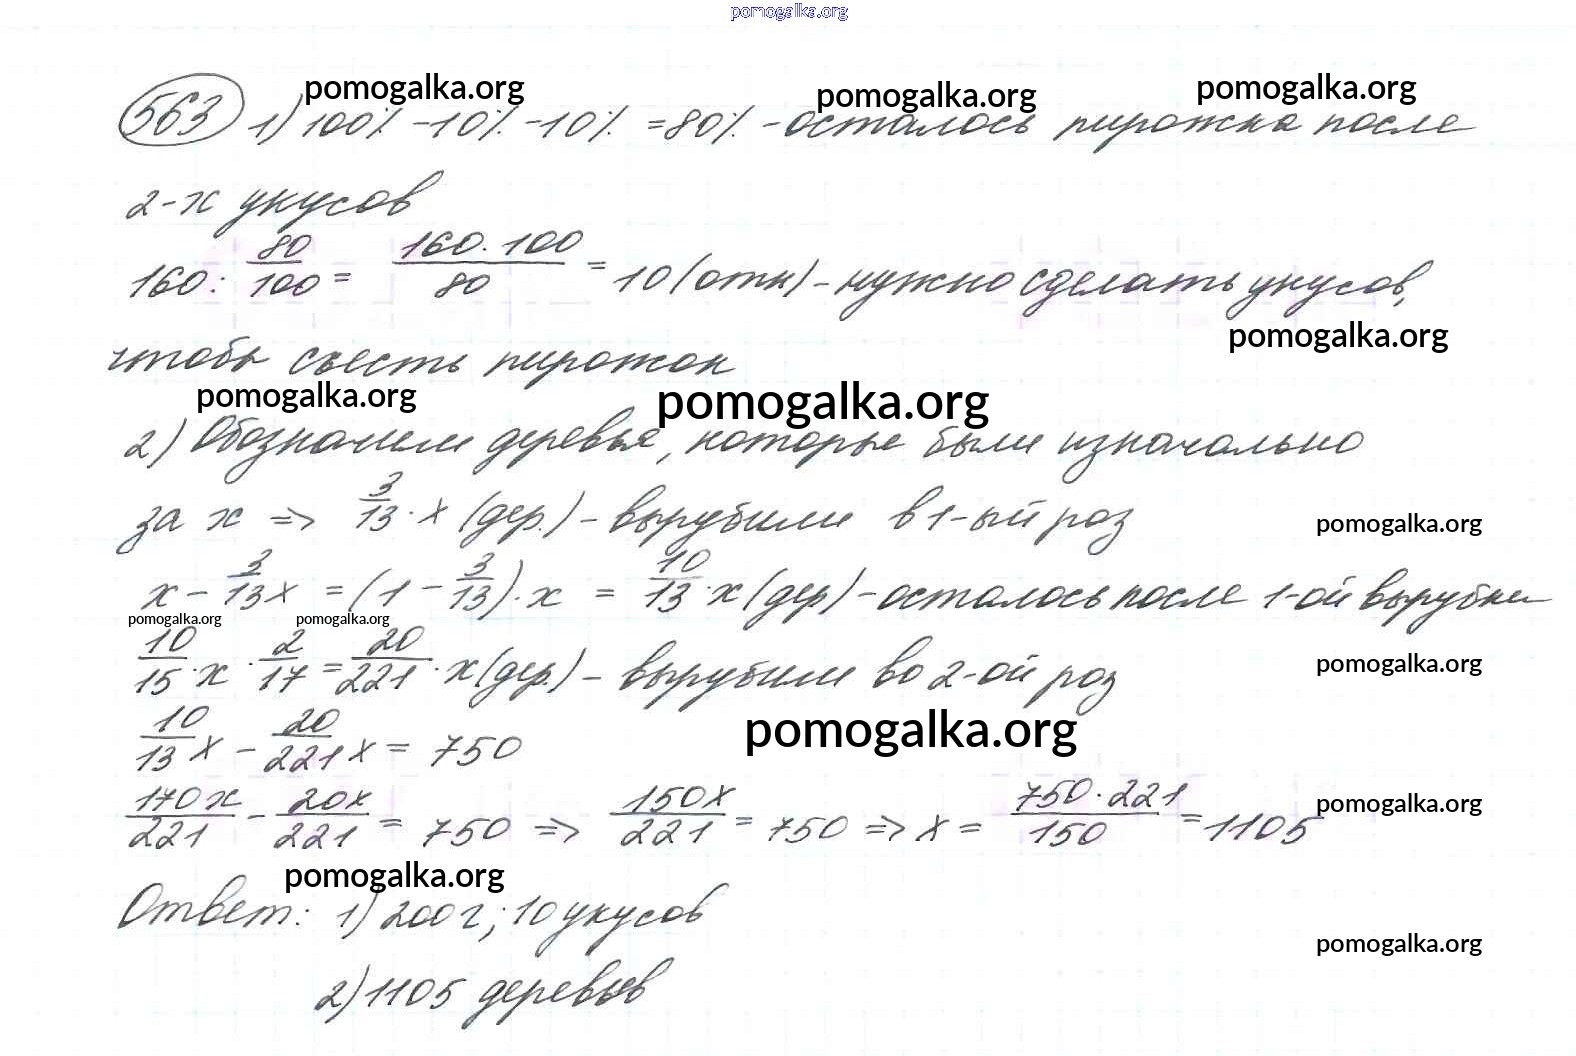 pomogalka.org
563 1) 100% - 10% - 10% = 80% - осталось пирожка после
pomogalka.org pomogalka.org pomogalka.org
2-х укусов
160 : 80/100 = 160 · 100/80 = 10 (отк) - нужно сделать укусов,
pomogalka.org
чтобы съесть пирожок
pomogalka.org pomogalka.org
2) Обозначим деревья, которые были изначально
за x => 3/13 · x (дер.) - вырубили в 1-ый роз
pomogalka.org
x - 3/13 x = (1 - 3/13) · x = 10/13 · x (дер) - осталось после 1-ой вырубки
pomogalka.org pomogalka.org
10/15 · x · 2/17 = 20/221 · x (дер.) - вырубили во 2-ой роз
pomogalka.org
10/13 x - 20/221 x = 750
pomogalka.org
170x/221 - 20x/221 = 750 => 150x/221 = 750 => x = 750 · 221/150 = 1105
pomogalka.org
pomogalka.org
Ответ: 1) 200 г; 10 укусов
pomogalka.org
2) 1105 деревьев